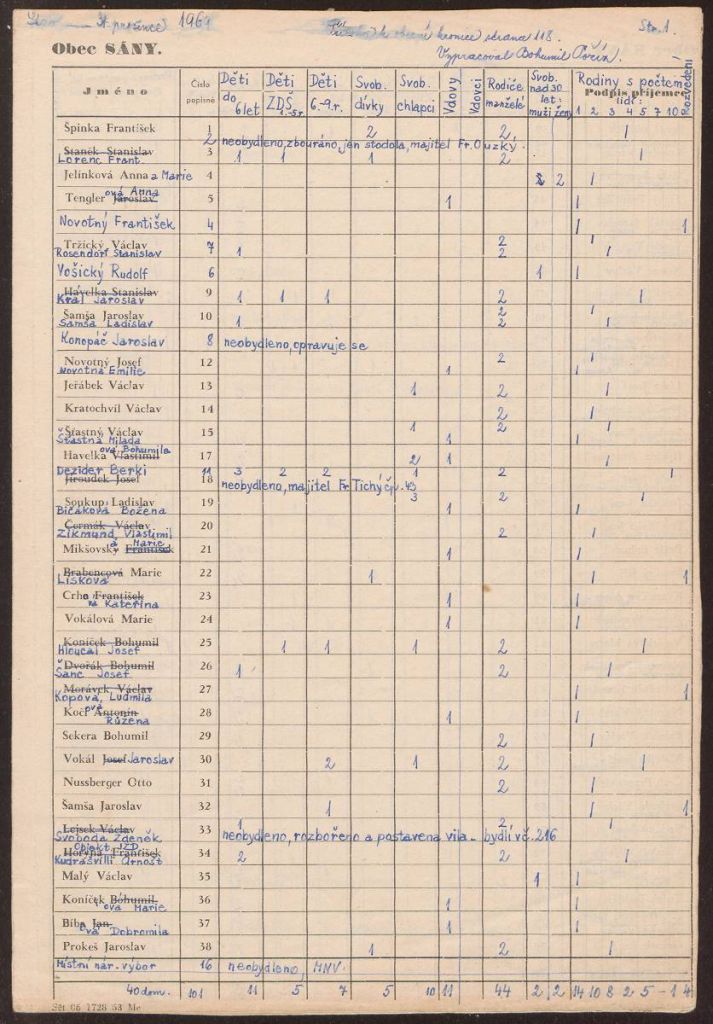 31. prosince 1961 obecní kronice strana 118. Str. 1.
Obec SÁNY. Vypracoval Bohumil Pořín.
Jméno Číslo popisné Děti do 6 let Děti ZDŠ 1.-5.r. Děti 6.-9.r. Svob. dívky Svob. chlapci Vdovy Vdovci Rodiče manželé Svob. nad 30 let: muži ženy Rodiny s počtem lidí: 1 2 3 4 5 7 10 Podpis příjemce Rozvedení
Špinka František 1 2 2 1
2 neobydleno, zbouráno, jen stodola, majitel Fr. Ouzký.
Staněk Stanislav 3
Lorenc Frant. 1 1 1 2 1
Jelínková Anna a Marie 4 2 1
Tengler Jaroslav ová Anna 5 1 1
Novotný František 4 1 1
Tržický Václav 7 2 1
Rosendorf Stanislav 1 2 1
Vošický Rudolf 6 1 1
Havelka Stanislav 9
Král Jaroslav 1 1 1 2 1
Šamša Jaroslav 10 2 1
Šamša Ladislav 1 2 1
Konopáč Jaroslav 8 neobydleno, opravuje se
Novotný Josef 12 2 1
Novotná Emilie 1 1
Jeřábek Václav 13 1 2 1
Kratochvíl Václav 14 2 1
Šťastný Václav 15 1 2 1
Šťastná Milada 1 1
Havelka Vlastimil ová Bohumila 17 2 1 1
Dezider Berki 11 3 2 2 1 2 1
Jiroudek Josef 18 neobydleno, majitel Fr. Tichý čp. 43
Soukup Ladislav 19 3 2 1
Bičáková Božena 1 1
Čermák Václav 20
Zikmund, Vlastimil 2 1
Mikšovský František a Marie 21 1 1
Brabencová Marie 22 1 1 1
Lisková
Crha František 23 1 1
Kateřina
Vokálová Marie 24 1 1
Koníček Bohumil 25 1 1 1 2 1
Hloucal Josef
Dvořák Bohumil 26 1 2 1
Šanc Josef
Morávek Václav 27 1 1
Kopová, Ludmila
Kočí Antonín 28 1 1
ová Růžena
Sekera Bohumil 29 2 1
Vokál Josef Jaroslav 30 2 1 2 1
Nussberger Otto 31 2 1
Šamša Jaroslav 32 1 2 1 1
Lejsek Václav 33 1 2 1
Svoboda Zdeněk neobydleno, rozbořeno a postavena vila - bydlí v č. 216
Objekt JZD
Horyna František 34 2 2 1
Kudrášvilli Arnošt
Malý Václav 35 1 1
Koníček Bohumil 36 1 1
ová Marie
Bíba Jan 37 1 1
ová Dobromila
Prokeš Jaroslav 38 1 2 1
Místní nár. výbor 16 neobydleno, MNV.
40 dom. 101 11 5 7 5 10 11 44 2 2 14 10 8 2 5 - 1 4
Sčt 06 1728 53 Me